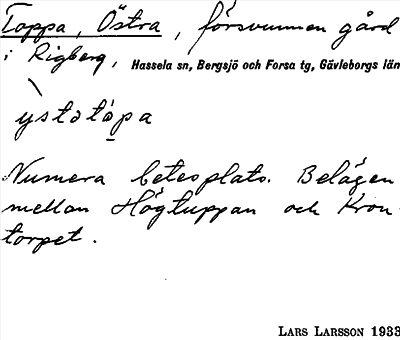 Toppa, Östra, försvunnen gård
i Rigberg, Hassela sn, Bergsjö och Forsa tg, Gävleborgs län
ystotåpa
Numera betesplats. Belägen
mellan Högtuppan och Kron-
torpet.
LARS LARSSON 1933